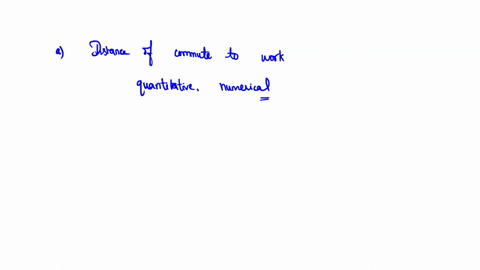 a) Distance of commute to work
quantitative. numerical